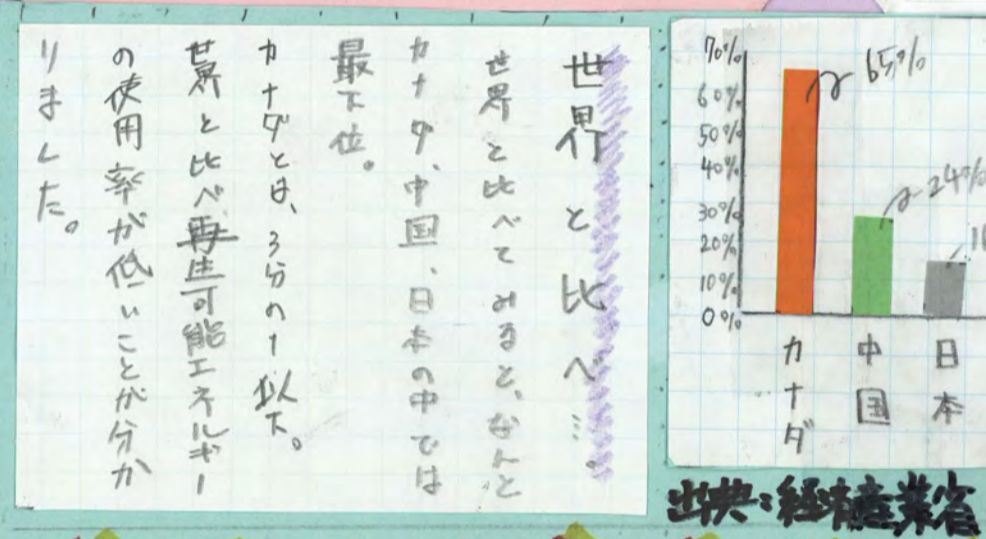 世界と比べ…。
世界と比べてみると、なんと
カナダ、中国、日本の中では
最下位。
カナダとは、3分の1以下。
世界と比べ再生可能エネルギー
の使用率が低いことが分か
りました。
70%
60%
50%
40%
30%
20%
10%
0%
65%
24%
カナダ
中国
日本
出典：経済産業省